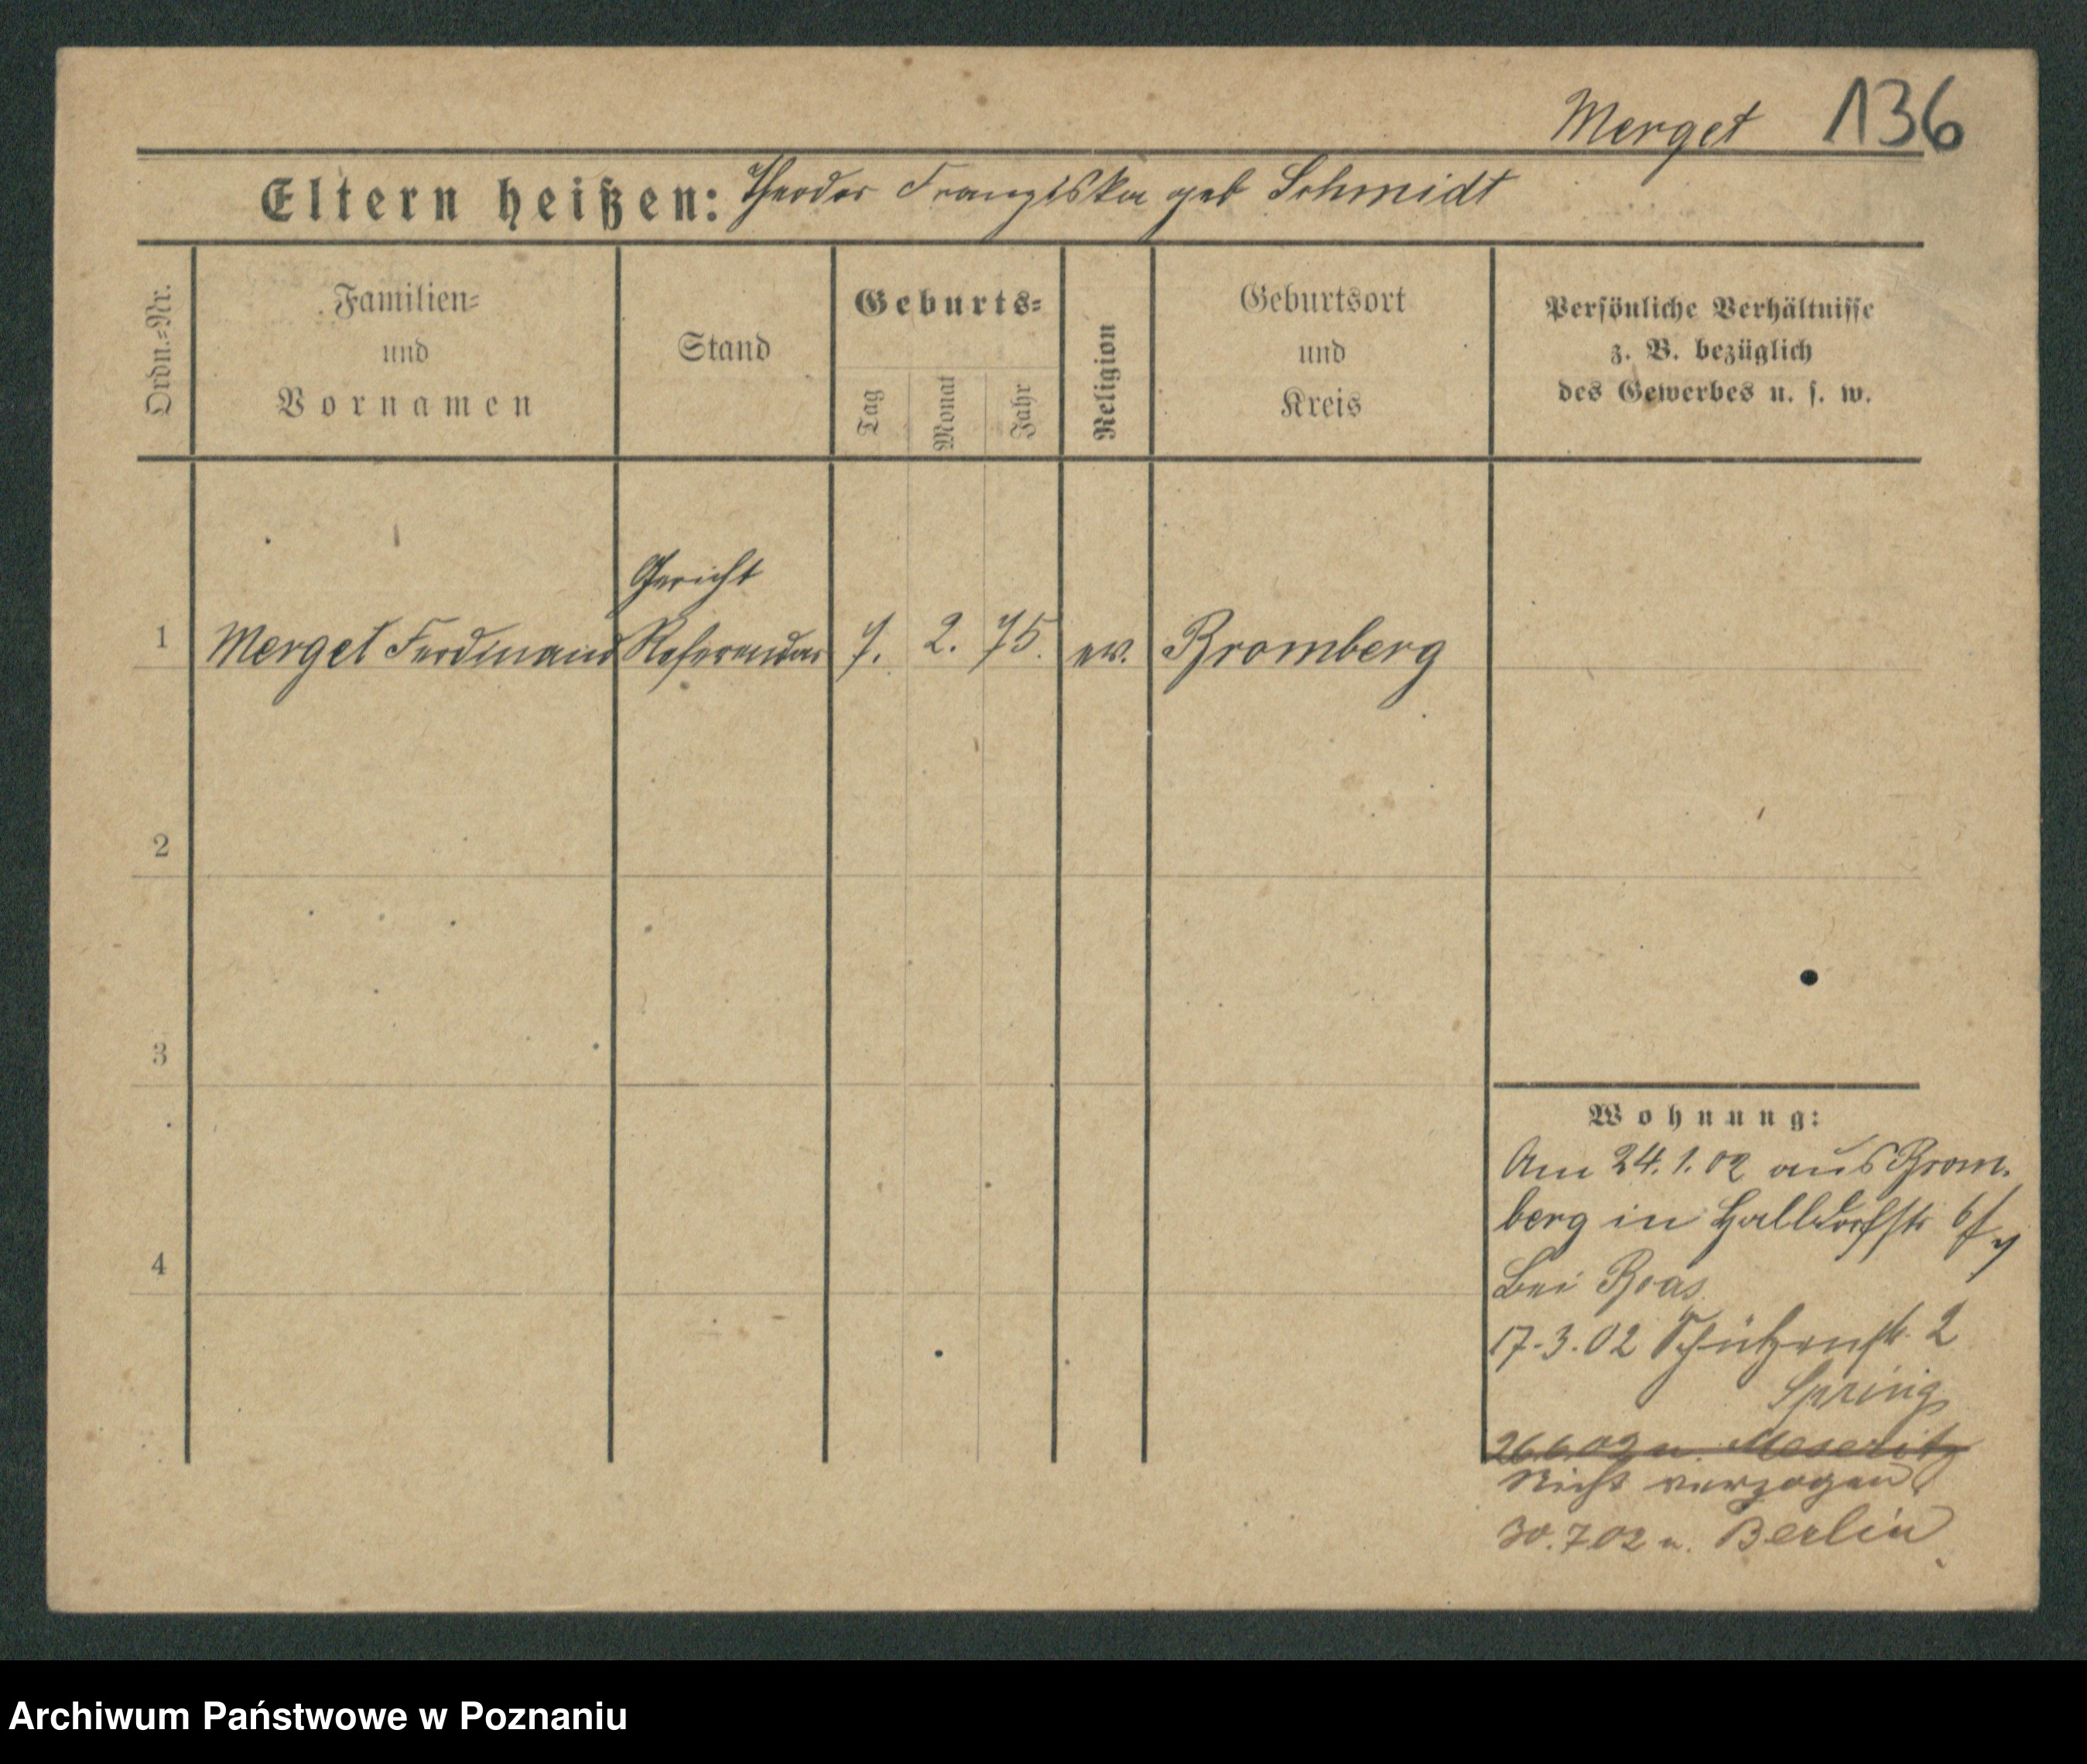 Merget 136
Eltern heißen: Theodor Franziska geb Schmidt
Ordn.-Nr.
Familien-
und
Vornamen
Stand
Geburts-
Tag
Monat
Jahr
Religion
Geburtsort
und
Kreis
Persönliche Verhältnisse
z. B. bezüglich
des Gewerbes u. s. w.
Gericht
1 Merget Ferdinand Referendar 7. 2. 75. ev. Bromberg
2
3
4
Wohnung:
Am 24.1.02 aus Brom-
berg in Halldorfstr
bei Boas.
17.3.02 Schützenstr. 2
Spring
26.6.02 n. Meseritz
Nicht verzogen
30.7.02 n. Berlin
Archiwum Państwowe w Poznaniu